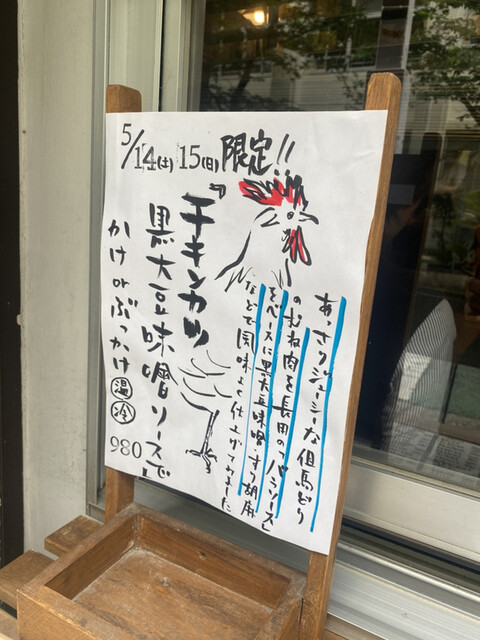 5/14(土) 15(日) 限定!!
『チキンカツ
黒大豆味噌ソースで』
かけorぶっかけ 温 冷
980
あっさりジューシーな但馬どり
のむね肉を長田の「バラソース」
をベースに黒大豆味噌・すり胡麻
などで風味よく仕上げてみました